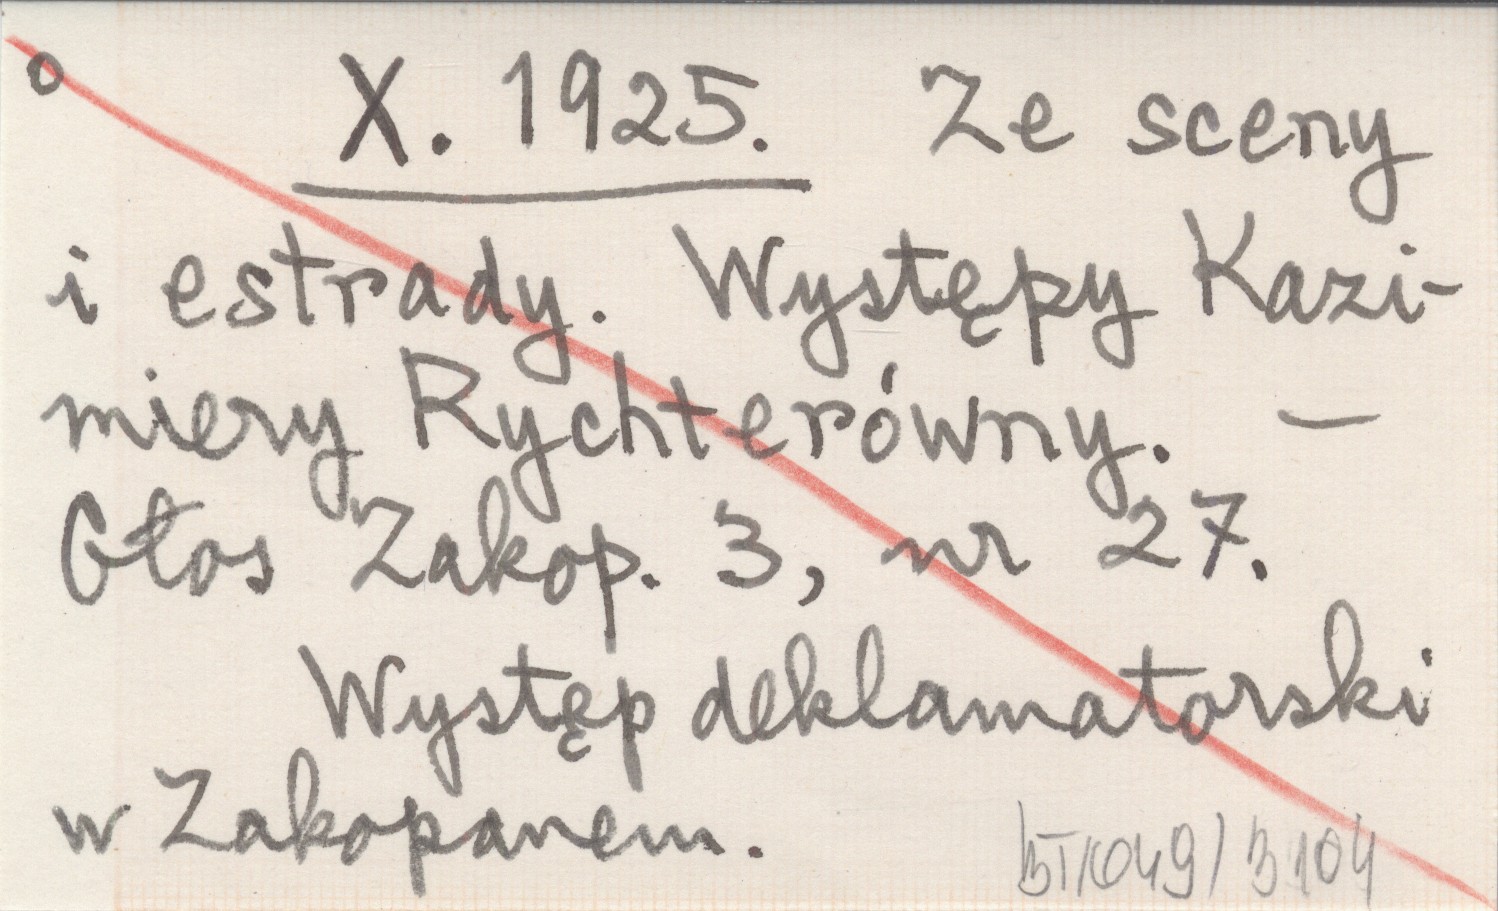 o X. 1925. Ze sceny
i estrady. Występy Kazi-
miery Rychterówny. —
Głos Zakop. 3, nr 27.
Występ deklamatorski
w Zakopanem.